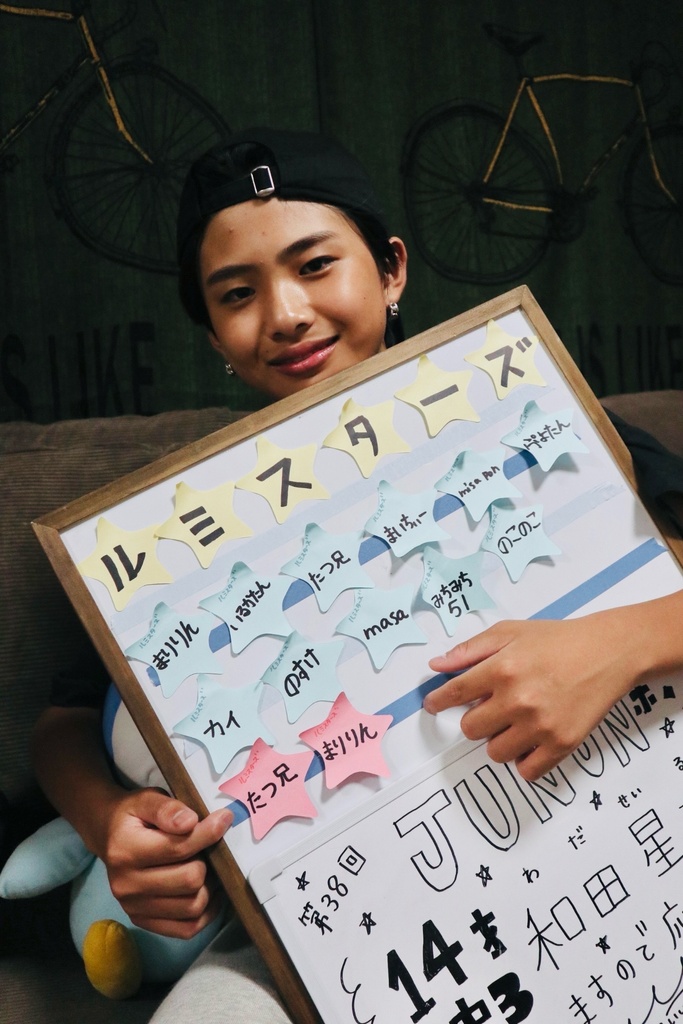 S LIKE
IS LIKE
ルミスターズ
まりりん
いるかたん
たつ兄
まいちぃー
misa pon
ぴよたん
カイ
のすけ
masa
みちみち
51
のこのこ
たつ兄
まりりん
第38回
JUNONボ
わだ せい
和田 星
14才
中3
ますので 応